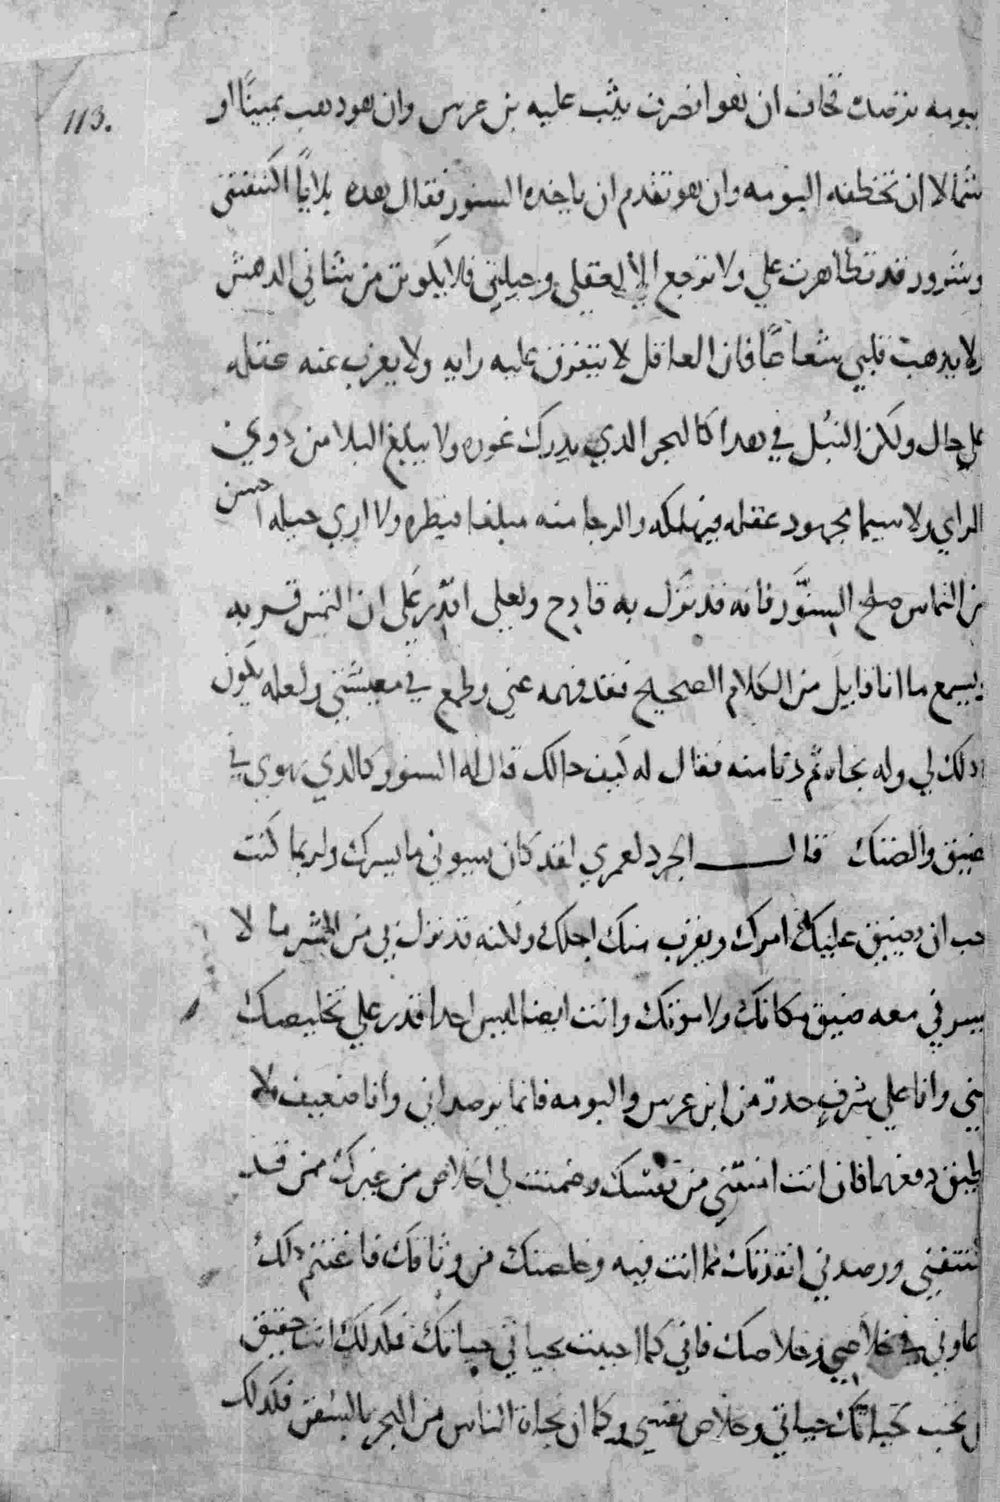 113.
ببومه ترصده فخاف ان هو انصرف يثب عليه بن عرس وان هو دهب يمينًا او
شمالا ان تخطفه البومه وان هو تقدم ان ياخده السنور فقال هده بلايا اكتنفتني
وشرور قد تظاهرت علي ولا نرجع الا لعقلي وحيلتي فلا يكونن من شاني الدهش
ولا يدهب قلبي شعاعًا فان العاقل لا يتفرق عليه رايه ولا يعزب عنه عقله
علي حال ولكن النبل في هدا كالبحر الدي يدرك غوره ولا يبلغ البلا من دوي
الراي ولا سيما مجهود عقله فيهلكه والرجا منه مبلغا فيطره ولا اري حيله احسن
من التماس صلح السنَّور فانه قد نزل به فادح ولعلي اقدر علي ان التمس قربه
ويسمع ما انا قايل من الكلام الصحيح فقد فهمه عني وطمع في معيشتي ولعله يكون
دلك لي وله نجاه ثم دنا منه فقال له كيف حالك قال له السنور كالدي تهوي في
ضيق والضنك قال الجرد لعمري لقد كان يسوني ما يسرك ولربما كنت
احب ان يضيق عليك امرك ويقرب منك اجلك ولكنه قد نزل بي من الشر ما لا
يسرني معه ضيق مكانك ولا موتك وانت ايضا ليس احدا قدر علي تخليصك
مني وانا علي شرف حدر من ابن عرس والبومه فانما يرصداني وانا ضعيف فلا
اطيق دفعهما فان انت امنتني من نفسك وضمنت لي اخلاص من غيرك ممن قد
اكتنفني ورصدني انقدتك مما انت فيه وخلصتك من وثاقك فاغتنم دلك
وعاوني في خلاصي وخلاصك فاني كما احببت بحياتي حياتك فكدلك انت حقيق
ان تحب بحياتك حياتي وخلاص نفسي وكما ان نجاة الناس من البحر بالسفن فكدلك